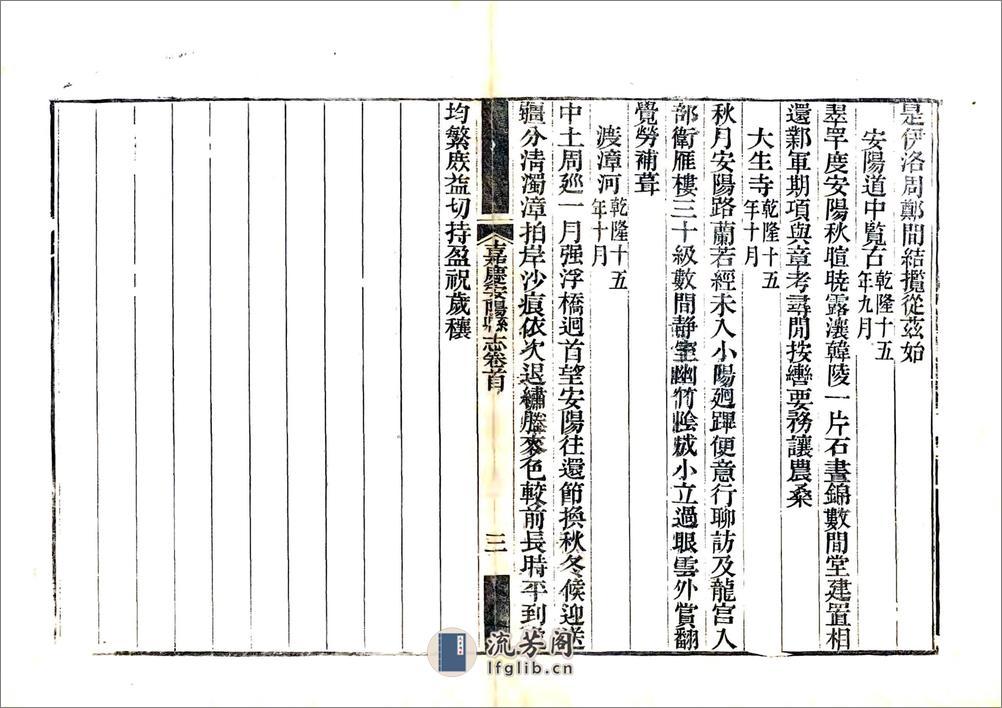 是伊洛周鄭間結攬從茲始
安陽道中覽古乾隆十五年九月
翠罕度安陽秋暄曉露瀼韓陵一片石晝錦數間堂建置相
還鄴軍期項與章考尋閒按轡要務讓農桑
大生寺乾隆十五年十月
秋月安陽路蘭若經未入小陽廻蹕便意行聊訪及龍宫入
部衛雁樓三十級數間静室幽竹陰
小立過眼雲外賞翻
覺勞補葺
渡漳河乾隆十五年十月
中土周廵一月强浮橋迴首望安陽往還節換秋冬候迎送
疆分清濁漳拍岸沙痕依次退繡塍麥色較前長時平到
均繁庶益切持盈祝歲穰
嘉慶安陽縣志卷首
三
流芳阁
lfglib.cn